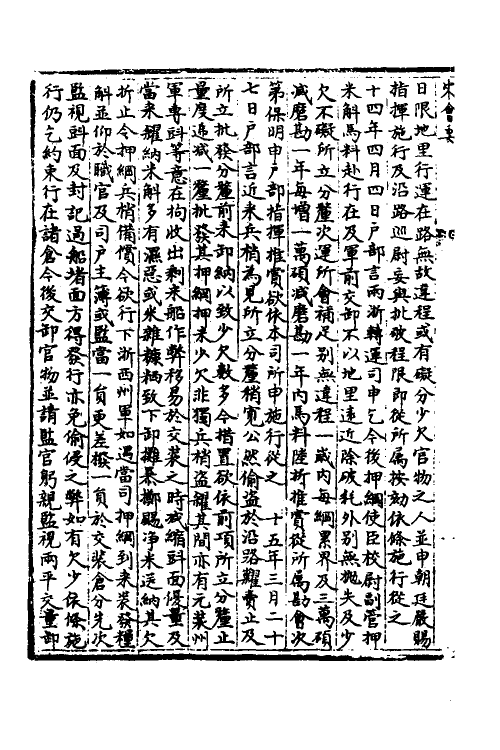 宋會要
日限地里行運在路無故違程或有礙分少欠官物之人並申朝廷嚴賜
指揮施行及沿路巡尉妄與批破程限即從所属按劾依條施行從之
十四年四月四日戶部言兩浙轉運司申乞今後押綱使臣校尉副管押
米斛馬料赴行在及軍前交卸不以地里遠近除破耗外別無拋失及少
欠不礙所立分釐次運所會補足別無違程一歲内每綱累界及三萬碩
減磨勘一年每增一萬碩減磨勘一年内馬料陸折推賞從所属勘會次
第保明申戶部指揮推賞欲依本司所申施行從之　十五年三月二十
七日戶部言近来兵梢為見所立分釐稍寬公然偷盗於沿路糶賣正及
所立批發分釐前来卸納以致少欠數多今措置欲依前項所立分釐止
量度追減一釐批發其押綱押来少欠非獨兵梢盗糶其間亦有元裝州
軍專斗等意在拘收出剩来船作弊移易於交裝之時減縮斗面優量及
當来糴納米斛多有濕惡或米雜糠粞致下卸攤暴擲颺净米送納其欠
折止令押綱兵梢備償今欲行下浙西州軍如遇當司押綱到来裝發糧
斛並仰於職官及司戶主簿或監當一員更差撥一員於交裝倉分先次
監視斗面及封記過船堵面方得發行亦免偷侵之弊如有欠少依條施
行仍乞約束行在諸倉今後交卸官物並請監官躬親監視兩平交量卸